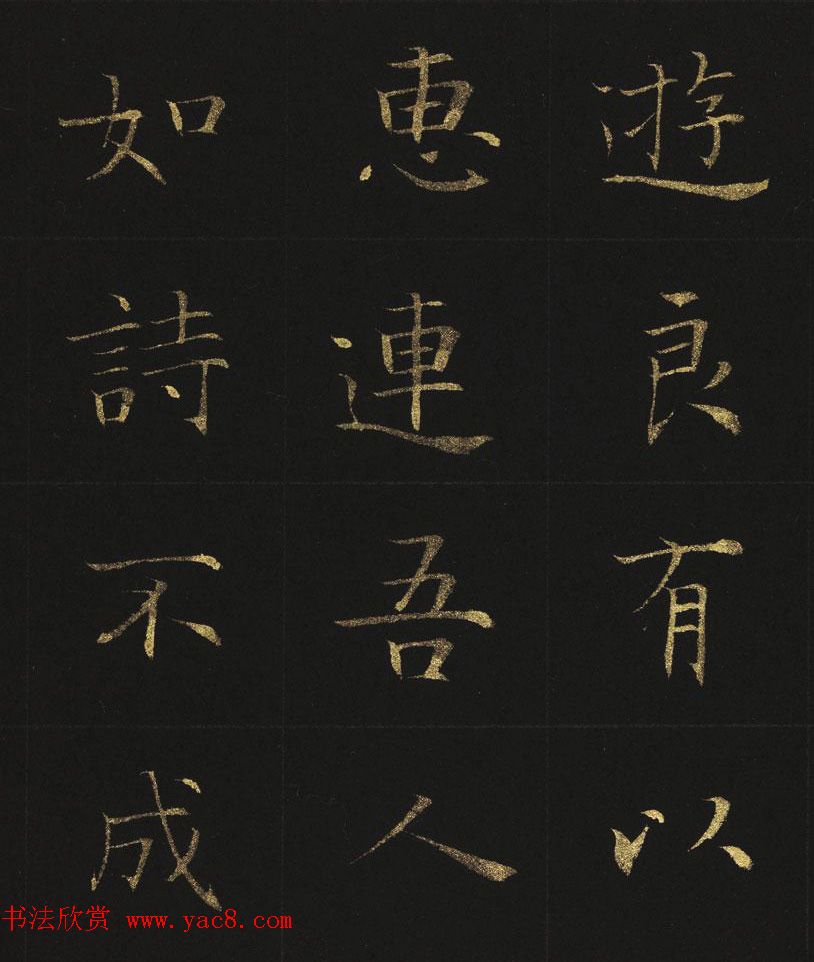 遊良有以
惠連吾人
如詩不成
书法欣赏 www.yac8.com